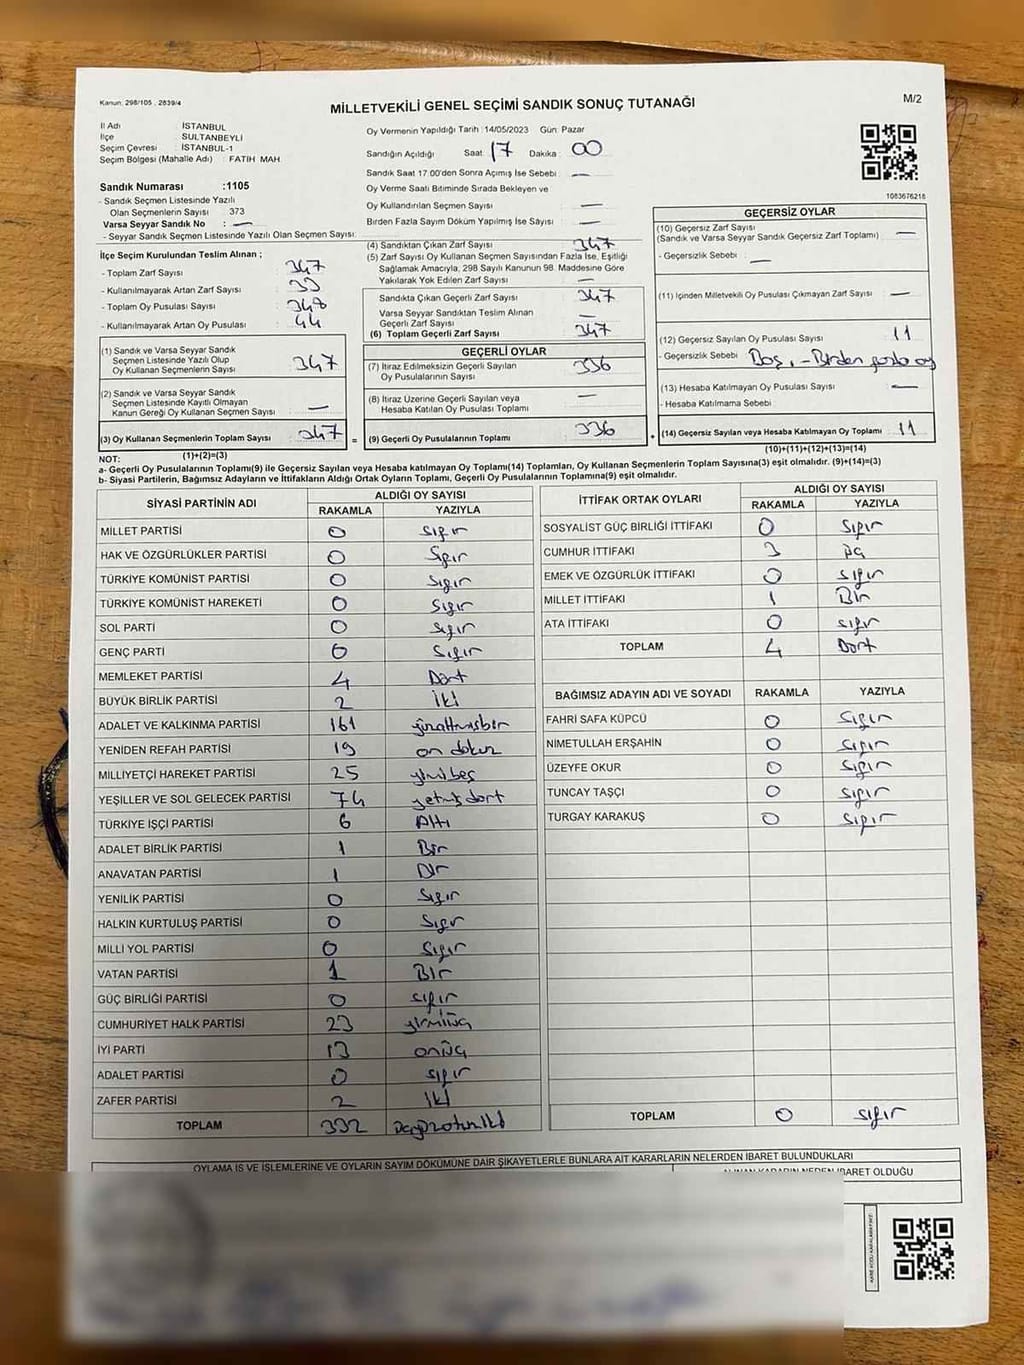 Kanun: 298/105 , 2839/4
MİLLETVEKİLİ GENEL SEÇİMİ SANDIK SONUÇ TUTANAĞI
M/2
İl Adı İSTANBUL
İlçe SULTANBEYLİ
Seçim Çevresi : İSTANBUL-1
Seçim Bölgesi (Mahalle Adı) : FATİH MAH.
Oy Vermenin Yapıldığı Tarih :14/05/2023 Gün: Pazar
Sandığın Açıldığı Saat: 17 Dakika : 00
Sandık Saat 17:00'den Sonra Açımış İse Sebebi : —
Oy Verme Saati Bitiminde Sırada Bekleyen ve
Oy Kullandırılan Seçmen Sayısı : —
Birden Fazla Sayım Döküm Yapılmış İse Sayısı : —
1083676218
Sandık Numarası :1105
- Sandık Seçmen Listesinde Yazılı
Olan Seçmenlerin Sayısı : 373
Varsa Seyyar Sandık No : —
- Seyyar Sandık Seçmen Listesinde Yazılı Olan Seçmen Sayısı:
İlçe Seçim Kurulundan Teslim Alınan ;
- Toplam Zarf Sayısı : 347
- Kullanılmayarak Artan Zarf Sayısı : 33
- Toplam Oy Pusulası Sayısı : 348
- Kullanılmayarak Artan Oy Pusulası : 44
(1) Sandık ve Varsa Seyyar Sandık
Seçmen Listesinde Yazılı Olup
Oy Kullanan Seçmenlerin Sayısı 347
(2) Sandık ve Varsa Seyyar Sandık
Seçmen Listesinde Kayıtlı Olmayan
Kanun Gereği Oy Kullanan Seçmen Sayısı —
(3) Oy Kullanan Seçmenlerin Toplam Sayısı 347 =
(1)+(2)=(3)
(4) Sandıktan Çıkan Zarf Sayısı 347
(5) Zarf Sayısı Oy Kullanan Seçmen Sayısından Fazla İse, Eşitliği
Sağlamak Amacıyla, 298 Sayılı Kanunun 98. Maddesine Göre
Yakılarak Yok Edilen Zarf Sayısı : —
Sandıkta Çıkan Geçerli Zarf Sayısı : 347
Varsa Seyyar Sandıktan Teslim Alınan
Geçerli Zarf Sayısı : —
(6) Toplam Geçerli Zarf Sayısı : 347
GEÇERLİ OYLAR
(7) İtiraz Edilmeksizin Geçerli Sayılan
Oy Pusulalarının Sayısı : 336
(8) İtiraz Üzerine Geçerli Sayılan veya
Hesaba Katılan Oy Pusulası Toplamı —
(9) Geçerli Oy Pusulalarının Toplamı 336 +
GEÇERSİZ OYLAR
(10) Geçersiz Zarf Sayısı
(Sandık ve Varsa Seyyar Sandık Geçersiz Zarf Toplamı) —
- Geçersizlik Sebebi : —
(11) İçinden Milletvekili Oy Pusulası Çıkmayan Zarf Sayısı : —
(12) Geçersiz Sayılan Oy Pusulası Sayısı : 11
- Geçersizlik Sebebi : Boş, - Birden fazla oy
(13) Hesaba Katılmayan Oy Pusulası Sayısı : —
- Hesaba Katılmama Sebebi :
(14) Geçersiz Sayılan veya Hesaba Katılmayan Oy Toplamı 11
(10)+(11)+(12)+(13)=(14)
NOT:
a- Geçerli Oy Pusulalarının Toplamı(9) ile Geçersiz Sayılan veya Hesaba katılmayan Oy Toplamı(14) Toplamları, Oy Kullanan Seçmenlerin Toplam Sayısına(3) eşit olmalıdır. (9)+(14)=(3)
b- Siyasi Partilerin, Bağımsız Adayların ve İttifakların Aldığı Ortak Oyların Toplamı, Geçerli Oy Pusulalarının Toplamına(9) eşit olmalıdır.
SİYASİ PARTİNİN ADI ALDIĞI OY SAYISI
RAKAMLA YAZIYLA
MİLLET PARTİSİ 0 sıfır
HAK VE ÖZGÜRLÜKLER PARTİSİ 0 Sıfır
TÜRKİYE KOMÜNİST PARTİSİ 0 Sıfır
TÜRKİYE KOMÜNİST HAREKETİ 0 Sıfır
SOL PARTİ 0 Sıfır
GENÇ PARTİ 0 Sıfır
MEMLEKET PARTİSİ 4 Dört
BÜYÜK BİRLİK PARTİSİ 2 İki
ADALET VE KALKINMA PARTİSİ 161 yüzaltmışbir
YENİDEN REFAH PARTİSİ 19 on dokuz
MİLLİYETÇİ HAREKET PARTİSİ 25 yirmibeş
YEŞİLLER VE SOL GELECEK PARTİSİ 74 yetmiş dört
TÜRKİYE İŞÇİ PARTİSİ 6 Altı
ADALET BİRLİK PARTİSİ 1 Bir
ANAVATAN PARTİSİ 1 Bir
YENİLİK PARTİSİ 0 Sıfır
HALKIN KURTULUŞ PARTİSİ 0 Sıfır
MİLLİ YOL PARTİSİ 0 Sıfır
VATAN PARTİSİ 1 Bir
GÜÇ BİRLİĞİ PARTİSİ 0 sıfır
CUMHURİYET HALK PARTİSİ 23 yirmiüç
İYİ PARTİ 13 onüç
ADALET PARTİSİ 0 sıfır
ZAFER PARTİSİ 2 iki
TOPLAM 332
İTTİFAK ORTAK OYLARI ALDIĞI OY SAYISI
RAKAMLA YAZIYLA
SOSYALİST GÜÇ BİRLİĞİ İTTİFAKI 0 Sıfır
CUMHUR İTTİFAKI 3 üç
EMEK VE ÖZGÜRLÜK İTTİFAKI 0 sıfır
MİLLET İTTİFAKI 1 Bir
ATA İTTİFAKI 0 sıfır
TOPLAM 4 Dört
BAĞIMSIZ ADAYIN ADI VE SOYADI RAKAMLA YAZIYLA
FAHRİ SAFA KÜPCÜ 0 Sıfır
NİMETULLAH ERŞAHİN 0 Sıfır
ÜZEYFE OKUR 0 Sıfır
TUNCAY TAŞÇI 0 sıfır
TURGAY KARAKUŞ 0 sıfır
TOPLAM 0 sıfır
OYLAMA İŞ VE İŞLEMLERİNE VE OYLARIN SAYIM DÖKÜMÜNE DAİR ŞİKAYETLERLE BUNLARA AİT KARARLARIN NELERDEN İBARET BULUNDUKLARI
ALINAN KARARIN NEDEN İBARET OLDUĞU